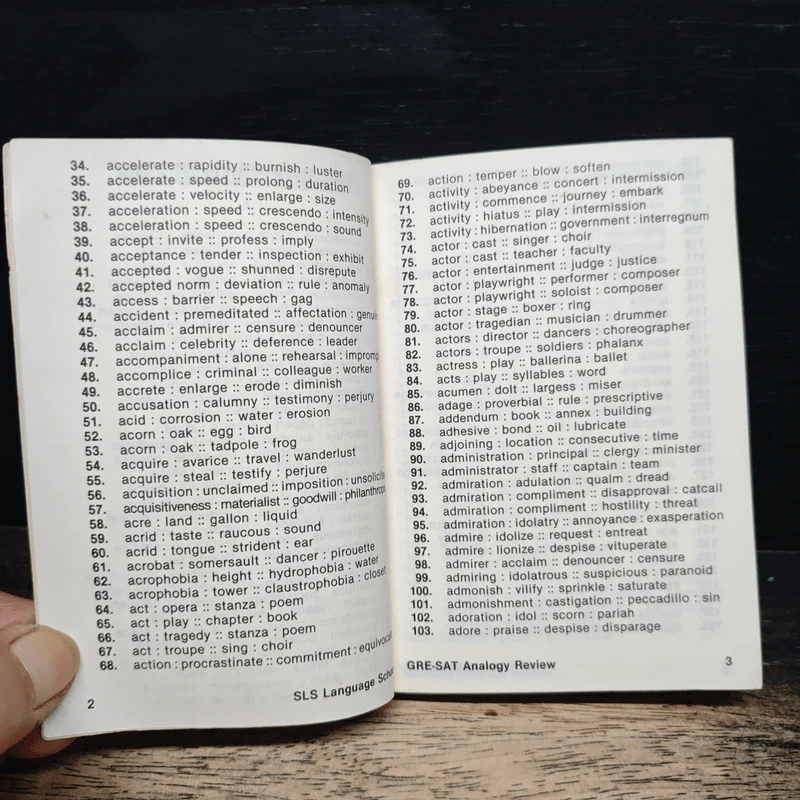 34. accelerate : rapidity :: burnish : luster
35. accelerate : speed :: prolong : duration
36. accelerate : velocity :: enlarge : size
37. acceleration : speed :: crescendo : intensity
38. acceleration : speed :: crescendo : sound
39. accept : invite :: profess : imply
40. acceptance : tender :: inspection : exhibit
41. accepted : vogue :: shunned : disrepute
42. accepted norm : deviation :: rule : anomaly
43. access : barrier :: speech : gag
44. accident : premeditated :: affectation : genuin
45. acclaim : admirer :: censure : denouncer
46. acclaim : celebrity :: deference : leader
47. accompaniment : alone :: rehearsal : impromp
48. accomplice : criminal :: colleague : worker
49. accrete : enlarge :: erode : diminish
50. accusation : calumny :: testimony : perjury
51. acid : corrosion :: water : erosion
52. acorn : oak :: egg : bird
53. acorn : oak :: tadpole : frog
54. acquire : avarice :: travel : wanderlust
55. acquire : steal :: testify : perjure
56. acquisition : unclaimed :: imposition : unsolicite
57. acquisitiveness : materialist :: goodwill : philanthrop
58. acre : land :: gallon : liquid
59. acrid : taste :: raucous : sound
60. acrid : tongue :: strident : ear
61. acrobat : somersault :: dancer : pirouette
62. acrophobia : height :: hydrophobia : water
63. acrophobia : tower :: claustrophobia : closet
64. act : opera :: stanza : poem
65. act : play :: chapter : book
66. act : tragedy :: stanza : poem
67. act : troupe :: sing : choir
68. action : procrastinate :: commitment : equivocat
2 SLS Language Schoo
69. action : temper :: blow : soften
70. activity : abeyance :: concert : intermission
71. activity : commence :: journey : embark
72. activity : hiatus :: play : intermission
73. activity : hibernation :: government : interregnum
74. actor : cast :: singer : choir
75. actor : cast :: teacher : faculty
76. actor : entertainment :: judge : justice
77. actor : playwright :: performer : composer
78. actor : playwright :: soloist : composer
79. actor : stage :: boxer : ring
80. actor : tragedian :: musician : drummer
81. actors : director :: dancers : choreographer
82. actors : troupe :: soldiers : phalanx
83. actress : play :: ballerina : ballet
84. acts : play :: syllables : word
85. acumen : dolt :: largess : miser
86. adage : proverbial :: rule : prescriptive
87. addendum : book :: annex : building
88. adhesive : bond :: oil : lubricate
89. adjoining : location :: consecutive : time
90. administration : principal :: clergy : minister
91. administrator : staff :: captain : team
92. admiration : adulation :: qualm : dread
93. admiration : compliment :: disapproval : catcall
94. admiration : compliment :: hostility : threat
95. admiration : idolatry :: annoyance : exasperation
96. admire : idolize :: request : entreat
97. admire : lionize :: despise : vituperate
98. admirer : acclaim :: denouncer : censure
99. admiring : idolatrous :: suspicious : paranoid
100. admonish : vilify :: sprinkle : saturate
101. admonishment : castigation :: peccadillo : sin
102. adoration : idol :: scorn : pariah
103. adore : praise :: despise : disparage
GRE-SAT Analogy Review 3